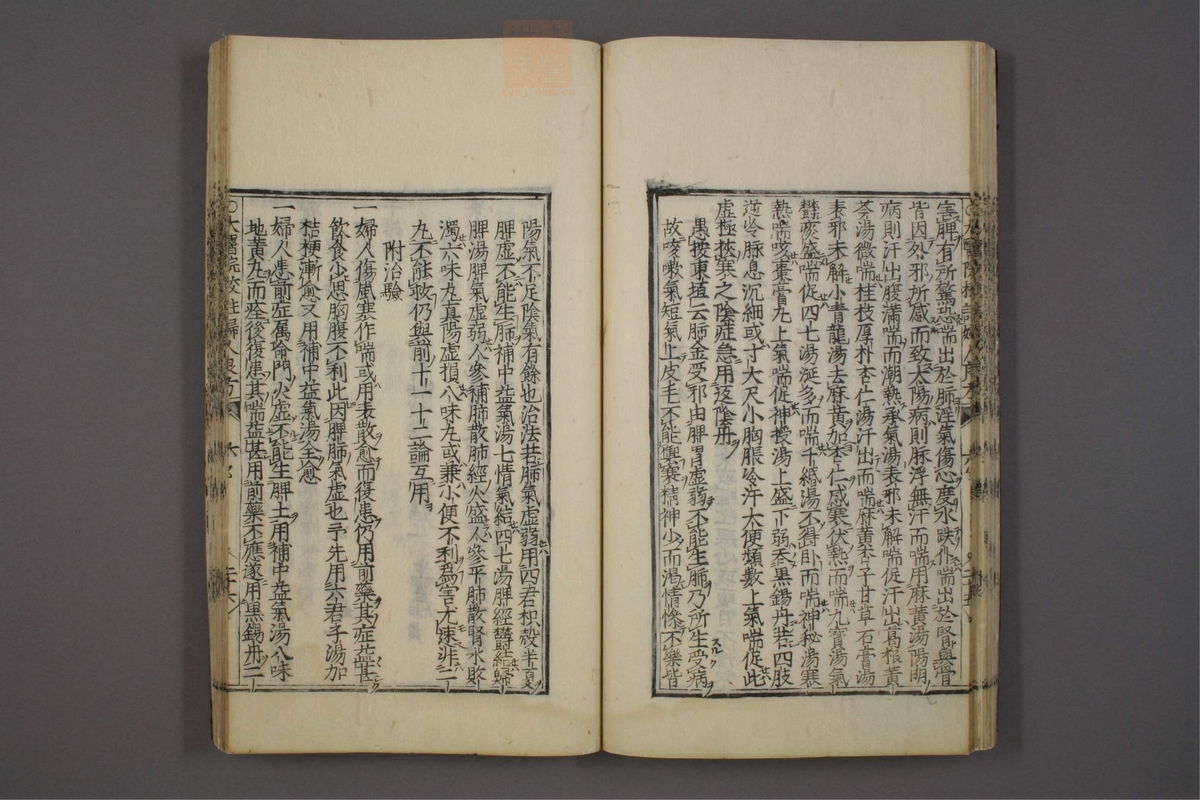 害脾有所驚恐喘出於肺淫氣傷心度水跌仆喘出於腎與骨
皆因外邪所感而致太陽病則脉浮無汗而喘用麻黄湯陽明
病則汗出腹滿喘而潮熱承氣湯表邪未解喘促汗出葛根黄
芩湯微喘桂枝厚朴杏仁湯汗出而喘麻黄杏子甘草石膏湯
表邪未解小青龍湯去麻黄加杏仁感寒伏熱而喘九寳湯氣
欝痰盛喘促四七湯涎多而喘千緡湯不得卧而喘神秘湯寒
熱喘咳棗膏丸上氣喘促神授湯上盛下弱呑黒錫丹若四肢
逆冷脉息沉細或寸大尺小胸脹冷汗大便頻數上氣喘促此
虚極挾寒之陰症急用返陰丹
愚按東垣云肺金受邪由脾胃虚弱不能生肺乃所生受病
故咳嗽氣短氣上皮毛不能禦寒精神少而渴情慘不樂皆
陽氣不足陰氣有餘也治法若肺氣虚弱用四君枳殻半夏
脾虚不能生肺補中益氣湯七情氣結四七湯脾經欝結歸
脾湯脾氣虚弱人參補肺散肺經火盛人參平肺散腎水敗
濁六味丸真陽虚損八味丸或兼小便不利爲害尤速非二
丸不能救仍與前十一十二論互用
附治驗
一婦人傷風寒作喘或用表散愈而復患仍用前藥其症益甚
飲食少思胸腹不利此因脾肺氣虚也予先用六君子湯加
桔梗漸愈又用補中益氣湯全愈
一婦人患前症属命門火虚不能生脾土用補中益氣湯八味
地黄丸而痊後復患其喘益甚用前藥不應遂用黒錫丹二
○太醫院校註婦人良方 六